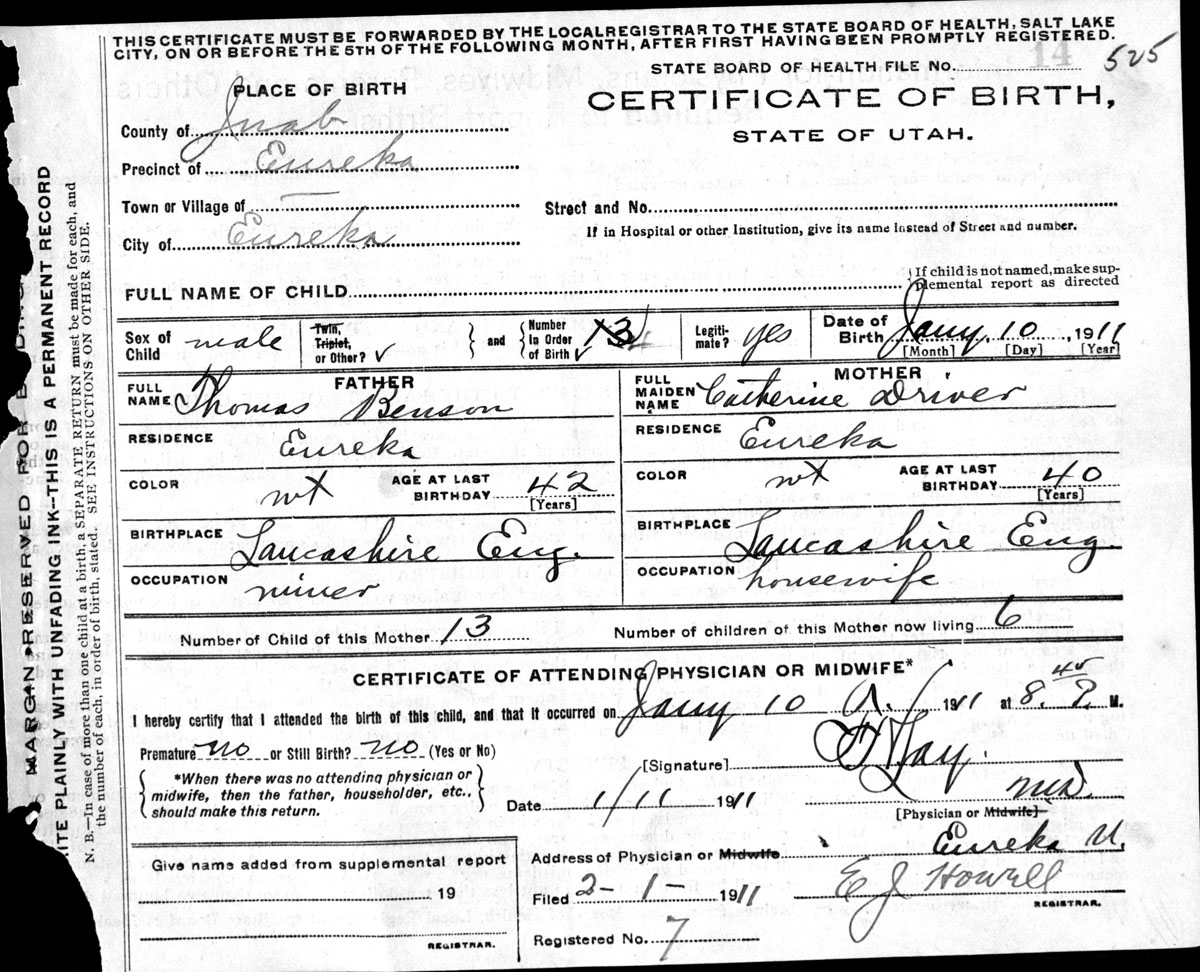 THIS CERTIFICATE MUST BE FORWARDED BY THE LOCAL REGISTRAR TO THE STATE BOARD OF HEALTH, SALT LAKE
CITY, ON OR BEFORE THE 5TH OF THE FOLLOWING MONTH, AFTER FIRST HAVING BEEN PROMPTLY REGISTERED.
STATE BOARD OF HEALTH FILE NO. 525
PLACE OF BIRTH
CERTIFICATE OF BIRTH,
STATE OF UTAH.
County of Juab
Precinct of Eureka
Town or Village of —
Street and No.
City of Eureka
If in Hospital or other Institution, give its name instead of Street and number.
FULL NAME OF CHILD
If child is not named, make sup-
plemental report as directed
Sex of Child male
Twin, Triplet, or Other? ✓ and Number in Order of Birth ✓ 13
Legiti-mate? yes
Date of Birth Jany. 10, 1911
[Month] [Day] [Year]
FATHER
FULL NAME Thomas Benson
RESIDENCE Eureka
COLOR wt AGE AT LAST BIRTHDAY 42 [Years]
BIRTHPLACE Lancashire Eng.
OCCUPATION miner
MOTHER
FULL MAIDEN NAME Catherine Driver
RESIDENCE Eureka
COLOR wt AGE AT LAST BIRTHDAY 40 [Years]
BIRTHPLACE Lancashire Eng.
OCCUPATION housewife
Number of Child of this Mother 13 Number of children of this Mother now living 6
CERTIFICATE OF ATTENDING PHYSICIAN OR MIDWIFE*
I hereby certify that I attended the birth of this child, and that it occurred on Jany 10 1911 at 8.45 P. M.
Premature no or Still Birth? no (Yes or No)
[Signature]
*When there was no attending physician or
midwife, then the father, householder, etc.,
should make this return.
Date 1/11 1911
M.D.
[Physician or Midwife]
Give name added from supplemental report
19
REGISTRAR.
Address of Physician or Midwife Eureka U.
Filed 2-1- 1911 E J Howell
REGISTRAR.
Registered No. 7
MARGIN RESERVED FOR
ITE PLAINLY WITH UNFADING INK--THIS IS A PERMANENT RECORD
N. B.—In case of more than one child at a birth, a SEPARATE RETURN must be made for each, and
the number of each in order of birth, stated. SEE INSTRUCTIONS ON OTHER SIDE.